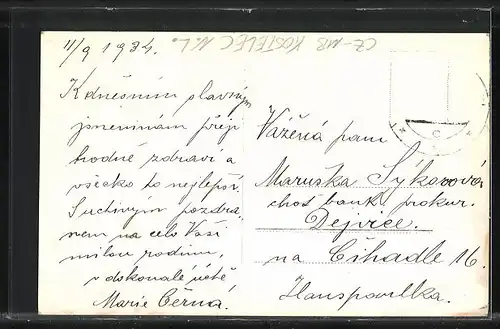 11/9 1934.
CZ-MB KOSTELEC N.L.
K dnešním slavným
jmeninám přeji
hodně zdraví a
všecko to nejlepší.
S uctivým pozdra-
vem na celo Vaši
milou rodinu,
v dokonalé úctě
Marie Černá.
Vážená paní
Maruška Sýkorová
choť bank. prokur.
Dejvice.
na Čihadle 16.
Hanspaulka.